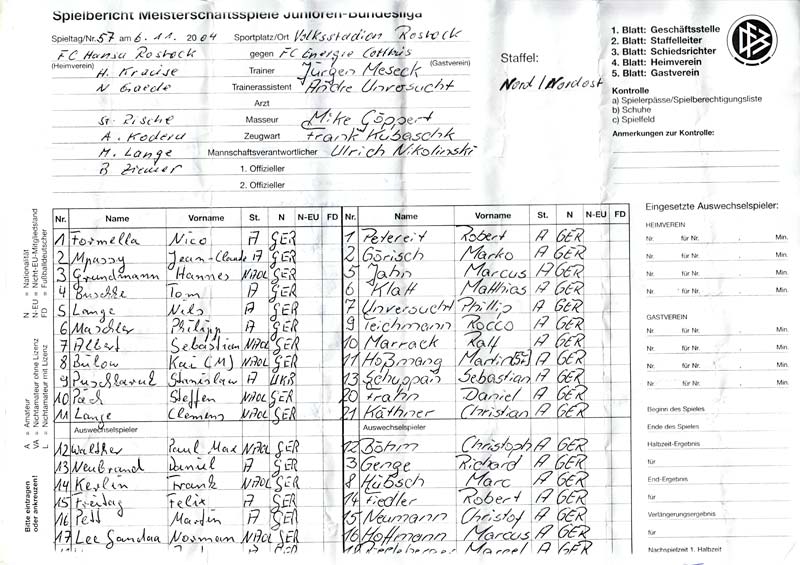 Spielbericht Meisterschaftsspiele Junioren-Bundesliga
Spieltag/Nr. 57 am 6. 11. 2004 Sportplatz/Ort Volksstadion Rostock
FC Hansa Rostock gegen FC Energie Cottbus
(Heimverein) (Gastverein)
H. Krause Trainer Jürgen Meseck
N Gaede Trainerassistent Andre Unversucht
Arzt
St. Masseur Mike Göppert
A. Koderu Zeugwart Frank Kubaschk
M. Lange Mannschaftsverantwortlicher Ulrich Nikolinski
B Ziemer 1. Offizieller
2. Offizieller
Staffel:
Nord/Nordost
1. Blatt: Geschäftsstelle
2. Blatt: Staffelleiter
3. Blatt: Schiedsrichter
4. Blatt: Heimverein
5. Blatt: Gastverein
DFB
Kontrolle
a) Spielerpässe/Spielberechtigungsliste
b) Schuhe
c) Spielfeld
Anmerkungen zur Kontrolle:
N = Nationalität
N-EU = Nicht-EU-Mitgliedsland
FD = Fußballdeutscher
A = Amateur
VA = Nichtamateur ohne Lizenz
L = Nichtamateur mit Lizenz
Bitte eintragen
oder ankreuzen!
Nr. Name Vorname St. N N-EU FD Nr. Name Vorname St. N N-EU FD
1 Formella Nico A GER 1 Petereit Robert A GER
2 Mpassy Jean-Claude A GER 2 Görisch Marko A GER
3 Grundmann Hannes NAOL GER 5 Jahn Marcus A GER
4 Buschke Tom A GER 6 Klatt Matthias A GER
5 Lange Nils A GER 7 Unversucht Phillip A GER
6 Maschler Philipp A GER 9 Teichmann Rocco A GER
7 Albert Sebastian NAOL GER 10 Marrack Ralf A GER
8 Bülow Kai (M) NAOL GER 11 Hoßmang Martin A GER
9 Stanislaw A UKR 13 Schuppan Sebastian A GER
10 Pech Steffen NAOL GER 20 Frahn Daniel A GER
11 Lange Clemens NAOL GER 21 Käthner Christian A GER
Auswechselspieler Auswechselspieler
12 Walther Paul Max NAOL GER 12 Böhm Christoph A GER
13 Neubrand Daniel A GER 3 Genge Richard A GER
14 Kerlin Frank NAOL GER 8 Hübsch Marc A GER
15 Freitag Felix A GER 14 Fiedler Robert A GER
16 Pett Martin A GER 15 Neumann Christof A GER
17 Lee Sandaa Norman NAOL GER 16 Hoffmann Marcus A GER
Marcel A GER
Eingesetzte Auswechselspieler:
HEIMVEREIN
Nr. für Nr. , Min.
Nr. für Nr. , Min.
Nr. für Nr. , Min.
Nr. für Nr. , Min.
GASTVEREIN
Nr. für Nr. , Min.
Nr. für Nr. , Min.
Nr. für Nr. , Min.
Nr. für Nr. , Min.
Beginn des Spieles
Ende des Spieles
Halbzeit-Ergebnis
für
End-Ergebnis
für
Verlängerungsergebnis
für
Nachspielzeit 1. Halbzeit